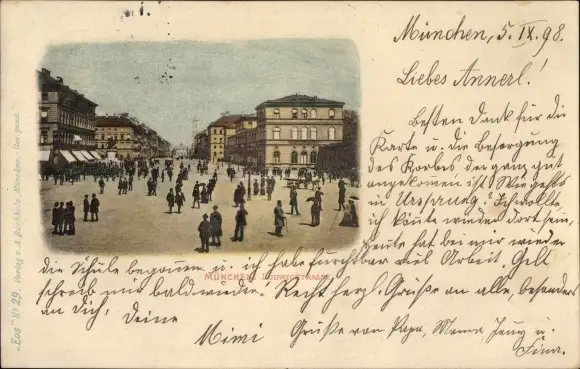 München, 5. IX. 98.
Liebes Annerl!
Besten Dank für die
Karte u. die Besorgung
des Korbes der ganz gut
angekommen ist! Wie gehts
in Ursprung? Ich wollte
ich könnte wieder dort sein,
heute hat bei mir wieder
die Schule begonnen u. ich habe furchtbar viel Arbeit. Gell
schreib mir bald wieder! Recht herzl. Grüße an alle, besonders
an Dich, Deine
Mimi
Grüße von Papa, Mama, Jenny u.
Fina.
MÜNCHEN LUDWIGSTRASSE
„Eos" No 29. Verlag v. A. Buchholz, München.